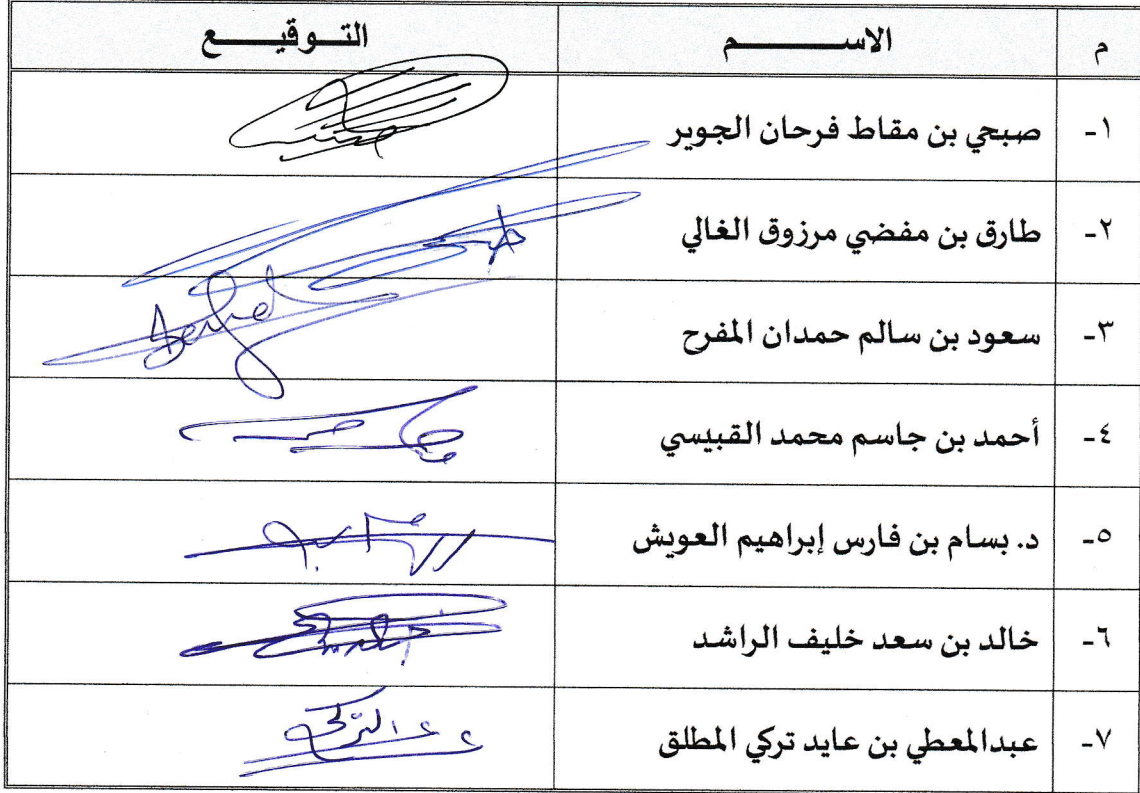 م الاســـــــم التــوقيـــــع
١- صبحي بن مقاط فرحان الجوير
٢- طارق بن مفضي مرزوق الغالي
٣- سعود بن سالم حمدان المفرح
٤- أحمد بن جاسم محمد القبيسي
٥- د. بسام بن فارس إبراهيم العويش
٦- خالد بن سعد خليف الراشد
٧- عبدالمعطي بن عايد تركي المطلق